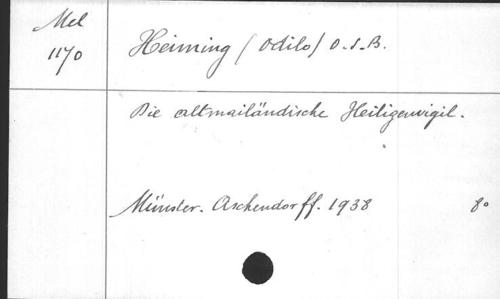 Mel
1170
Heiming (Odilo) O.S.B.
Die altmailändische Heiligenvigil.
Münster. Aschendorff. 1938 8°